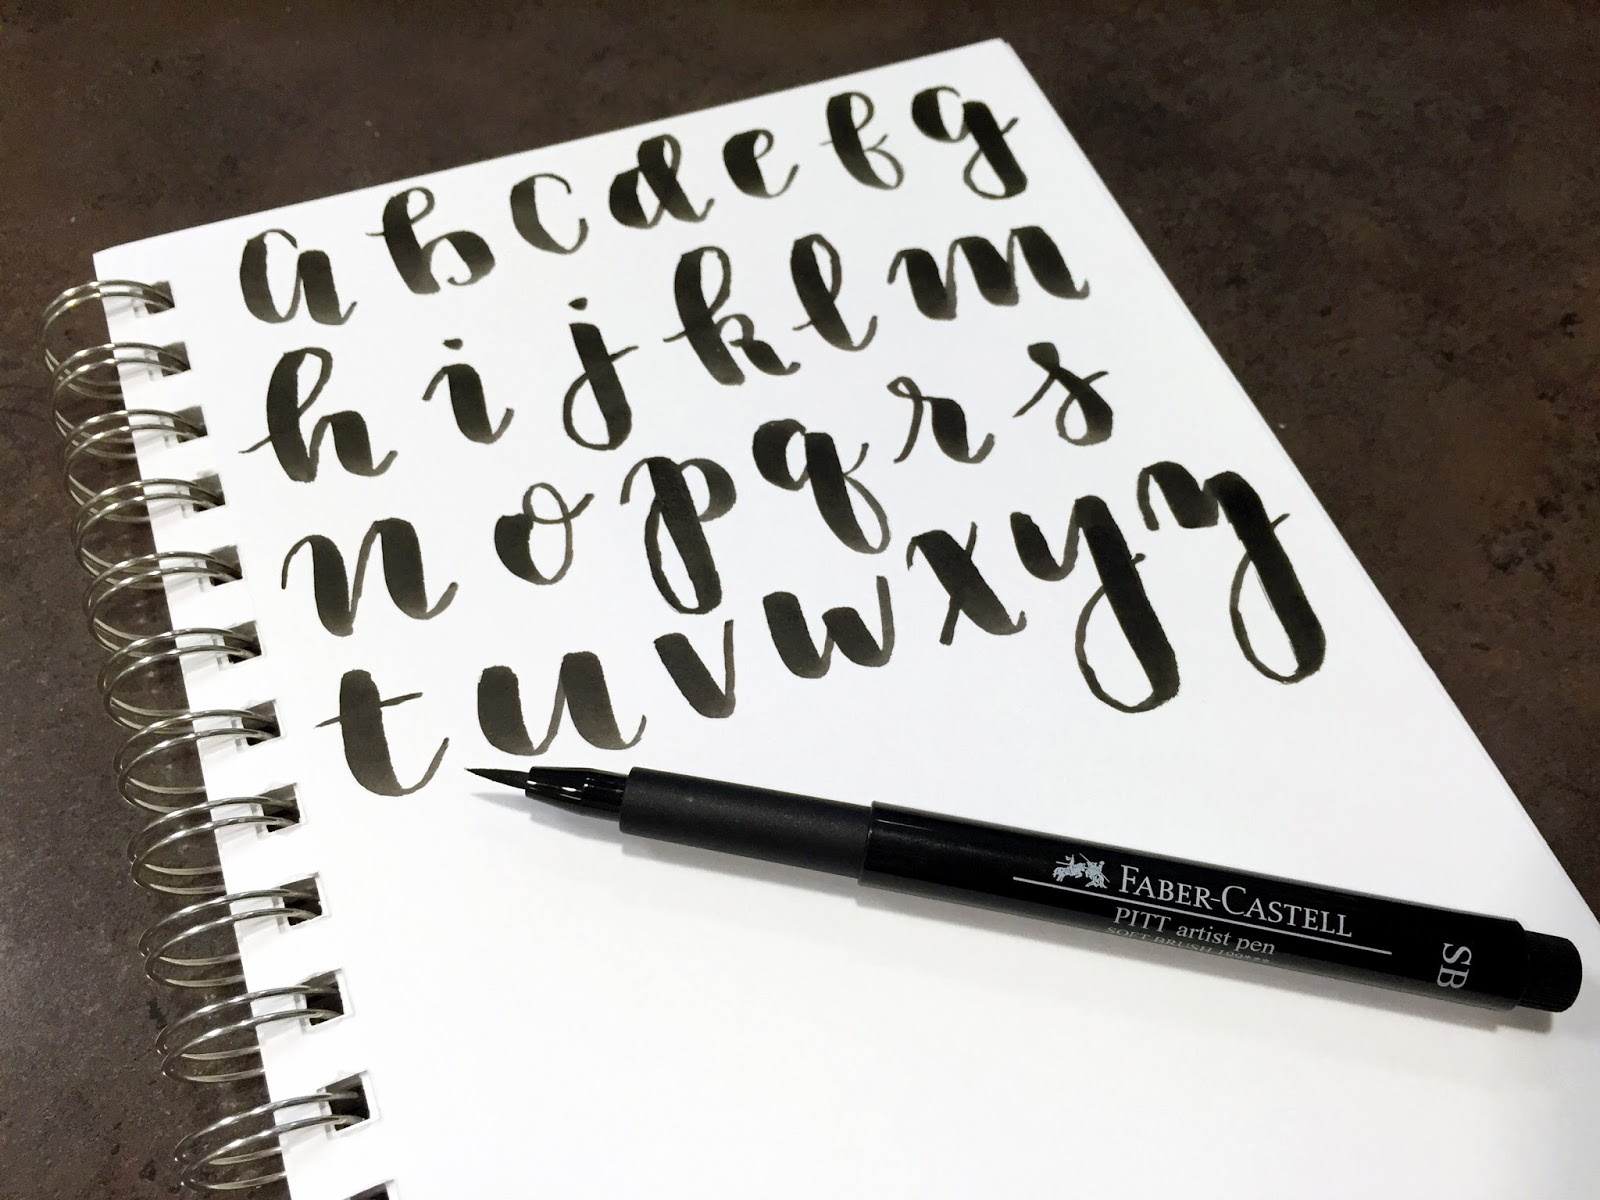 a b c d e f g
h i j k l m
n o p q r s
t u v w x y z
FABER-CASTELL
PITT artist pen
SOFT BRUSH 199***
SB